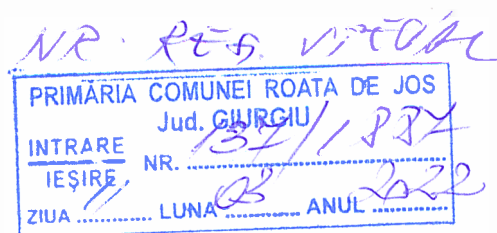 NR. REG. SPECIAL
PRIMĂRIA COMUNEI ROATA DE JOS
Jud. GIURGIU
INTRARE
IEȘIRE NR. 137/1887
ZIUA 11 LUNA 03 ANUL 2022